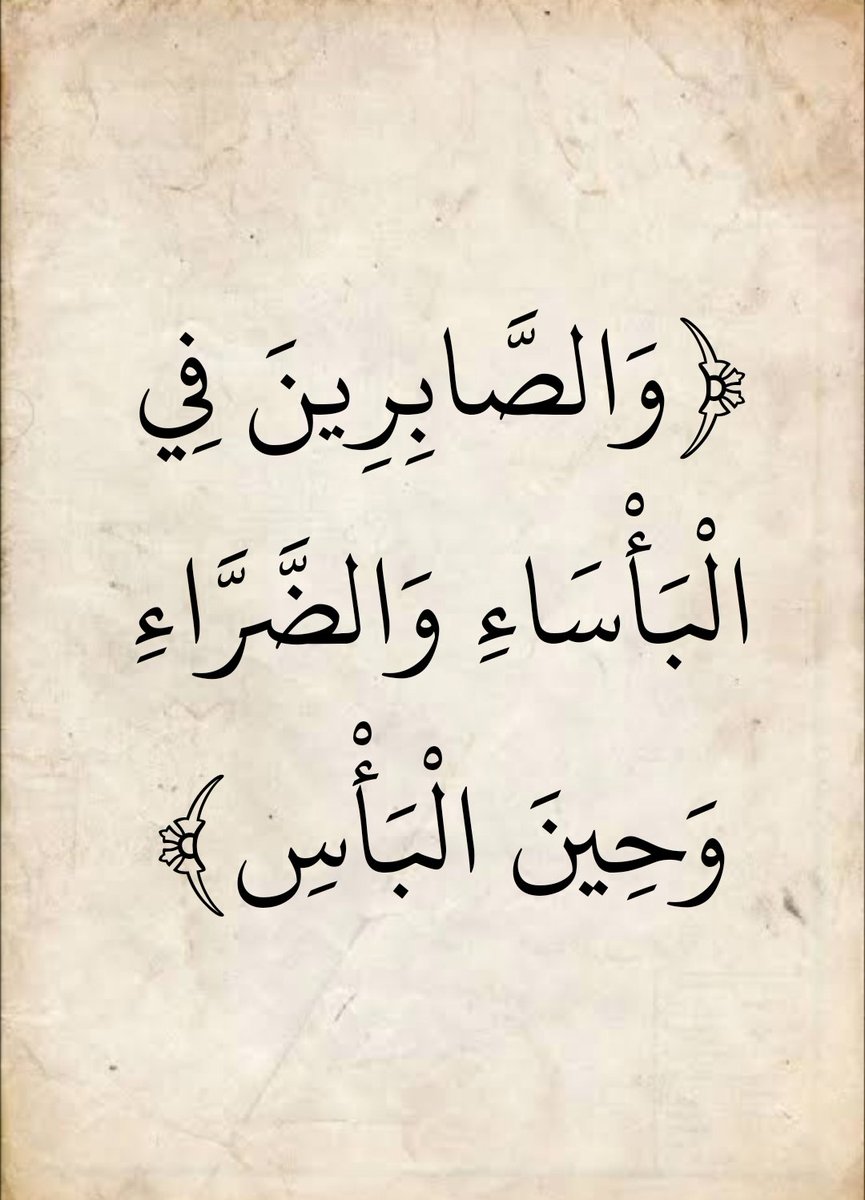 ﴿ وَالصَّابِرِينَ فِي
الْبَأْسَاءِ وَالضَّرَّاءِ
وَحِينَ الْبَأْسِ ﴾